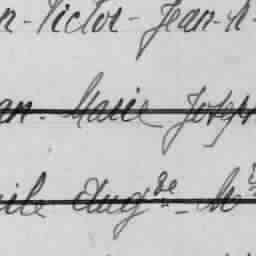 n-Victor-Jean-
an-Marie Joseph
ile Aug^de - M^